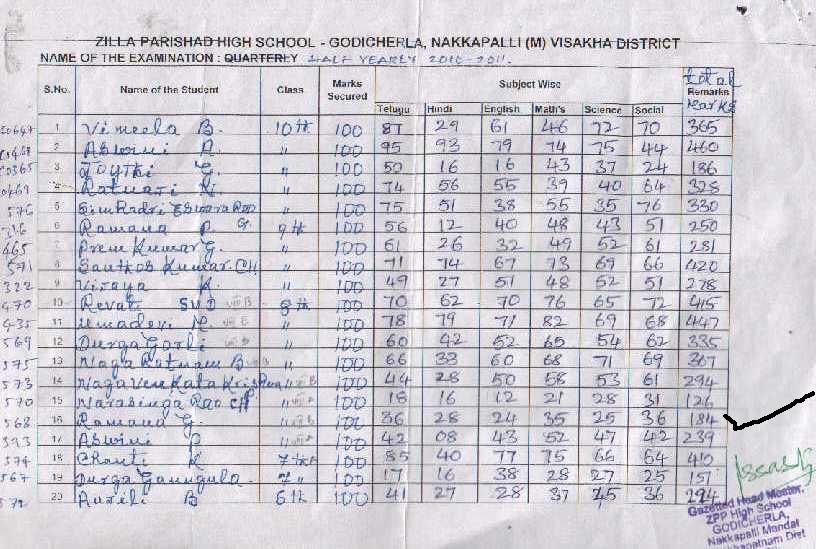 ZILLA PARISHAD HIGH SCHOOL - GODICHERLA, NAKKAPALLI (M) VISAKHA DISTRICT
NAME OF THE EXAMINATION : QUARTERLY HALF YEARLY 2010-2011.
S.No. Name of the Student Class Marks Secured Subject Wise total Remarks Marks
Telugu Hindi English Math's Science Social
1 Vimeela B. 10th 100 87 29 61 46 72 70 365
2 Aswini P. " 100 95 93 79 74 75 44 460
3 Joythi G. " 100 50 16 16 43 37 24 186
4 Ratnari K. " 100 74 56 55 39 40 64 328
576 5 Simhadri Eswara Rao " 100 75 51 38 55 35 76 330
6 Ramana P. G. 9th 100 56 12 40 48 43 51 250
465 7 Prem Kumar G. " 100 61 26 32 49 52 61 281
571 8 Santhos Kumar.CH " 100 71 74 67 73 69 66 420
322 9 Vijaya K. " 100 49 27 51 48 52 51 278
970 10 Revati SVD VIII B 8th 100 70 62 70 76 65 72 415
935 11 Umadevi M. VIII B " 100 78 79 71 82 69 68 447
569 12 Durga Gorli VIII B " 100 60 42 52 65 54 62 335
575 13 Naga Ratnam B VIII B " 100 66 33 60 68 71 69 367
573 14 Naga Venkata Krishna " VIII B 100 44 28 50 58 53 61 294
570 15 Narasinga Rao CH " VIII A 100 18 16 12 21 28 31 126
568 16 Ramana G. " VIII A 100 36 28 24 35 25 36 184
593 17 Aswini P " VIII A 100 42 08 43 52 47 42 239
574 18 Chanti K 7th A 100 85 40 77 75 66 64 410
567 19 Durga Gannugula 7 " 100 17 16 38 28 27 25 151
572 20 B 6th 100 41 27 28 37 45 36 224
Gazetted Head Master,
ZPP High School
GODICHERLA,
Nakkapalli Mandal
khapatnam Dist